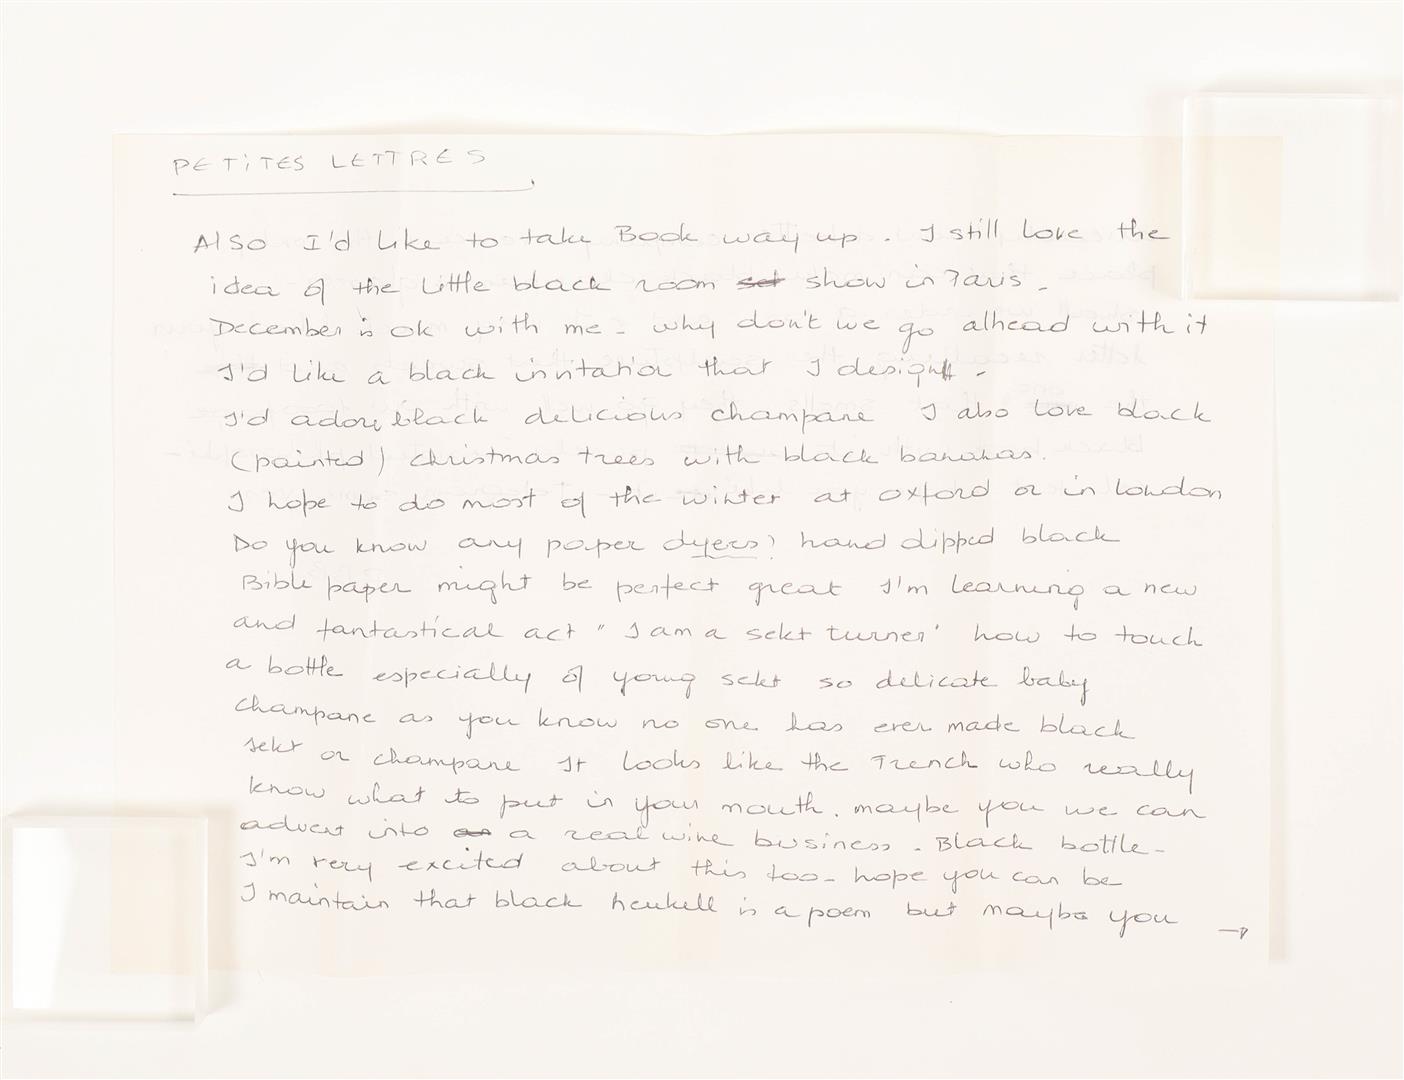 PETITES LETTRES
Also I'd like to take Book way up. I still love the
idea of the little black room set show in Paris.
December is ok with me - why don't we go alhead with it
I'd like a black invitation that I design -
I'd adore black delicious champane I also love black
(painted) christmas trees with black bananas.
I hope to do most of the winter at oxford or in london
Do you know any paper dyers? hand dipped black
Bible paper might be perfect great I'm learning a new
and fantastical act "I am a sekt turner" how to touch
a bottle especially of young sekt so delicate baby
champane as you know no one has ever made black
sekt or champane It looks like the French who really
know what to put in your mouth. maybe you we can
advert into a real wine business. Black bottle -
I'm very excited about this too - hope you can be
I maintain that black henkell is a poem but maybe you →